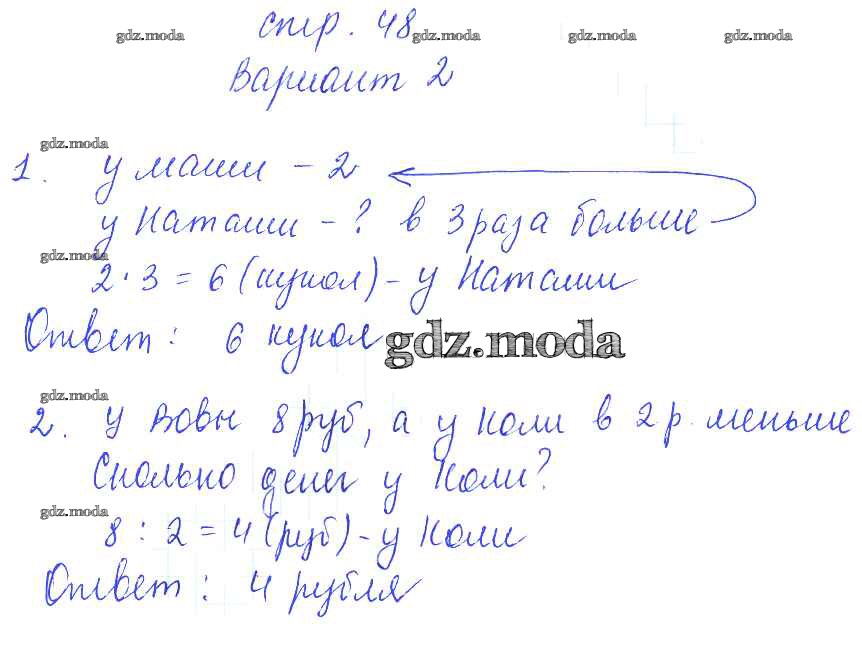 стр. 48
gdz.moda gdz.moda gdz.moda gdz.moda
Вариант 2
gdz.moda
1. У Маши – 2
У Наташи – ? в 3 раза больше
gdz.moda
2 · 3 = 6 (кукол) – у Наташи
Ответ : 6 кукол
gdz.moda
gdz.moda
2. У Вовы 8 руб, а у Коли в 2 р. меньше
Сколько денег у Коли?
gdz.moda
8 : 2 = 4 (руб) – у Коли
Ответ : 4 рубля